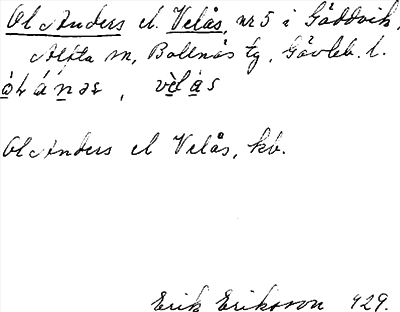 Ol Anders el. Velås, nr 5 i Gäddvik,
Alfta sn, Bollnäs tg, Gävleb. l.
vèlás
Ol Anders el Velås, kb.
Erik Eriksson 929.